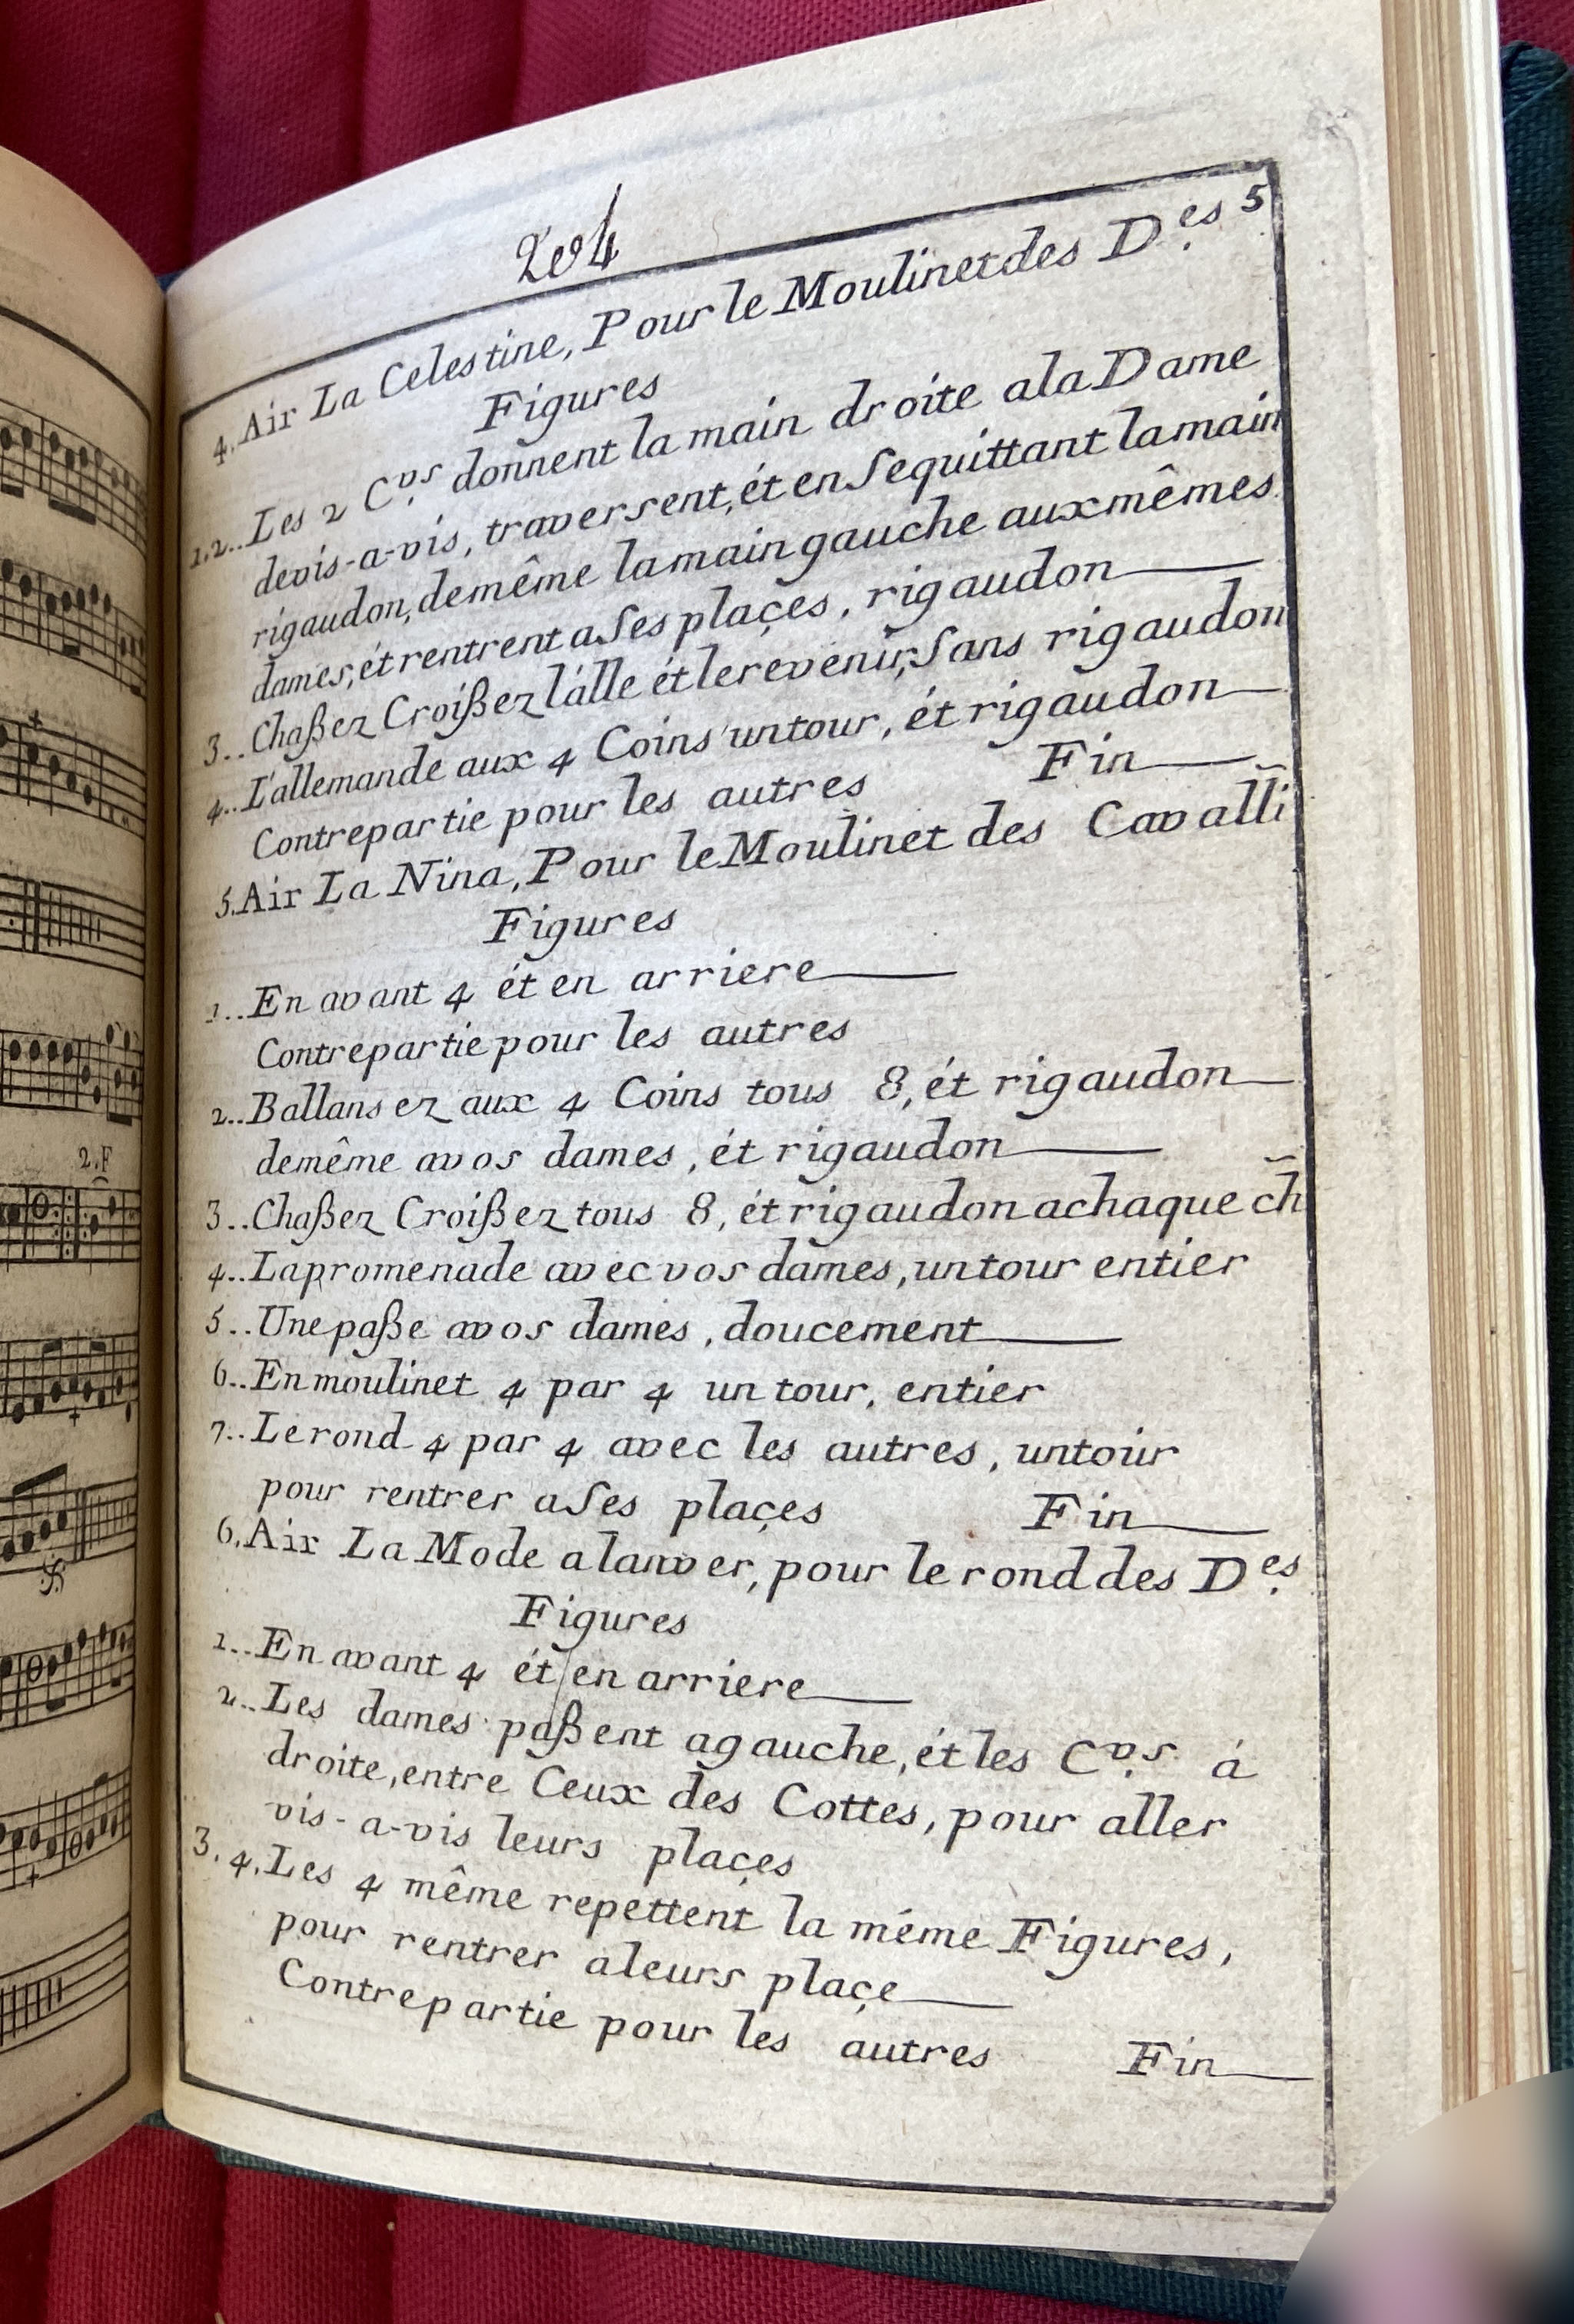 204
5
4. Air La Celestine, Pour le Moulinet des D.es
Figures
1.2.. Les 2 C.vs donnent la main droite a la Dame
devis-a-vis, traversent, ét en Se quittant la main
rigaudon, demême la main gauche aux mêmes
dames, ét rentrent a Ses plaçes, rigaudon
3.. Chaßez Croißez l'alle ét le revenir, Sans rigaudon
4.. L'allemande aux 4 Coins un tour, ét rigaudon
Contrepartie pour les autres Fin
5. Air La Nina, Pour le Moulinet des Cavalli
Figures
1.. En avant 4 ét en arriere
Contrepartie pour les autres
2.. Ballansez aux 4 Coins tous 8, ét rigaudon
demême a vos dames, ét rigaudon
3.. Chaßez Croißez tous 8, ét rigaudon a chaque ch
4.. La promenade avec vos dames, un tour entier
5.. Une paße a vos dames, doucement
6.. En moulinet 4 par 4 un tour, entier
7.. Le rond 4 par 4 avec les autres, un tour
pour rentrer a Ses plaçes Fin
6. Air La Mode a lanver, pour le rond des D.es
Figures
1.. En avant 4 ét en arriere
2.. Les dames paßent a gauche, ét les C.vs á
droite, entre Ceux des Cottes, pour aller
vis-a-vis leurs plaçes
3.4. Les 4 même repettent la même Figures,
pour rentrer a leurs plaçe
Contrepartie pour les autres Fin
2.F